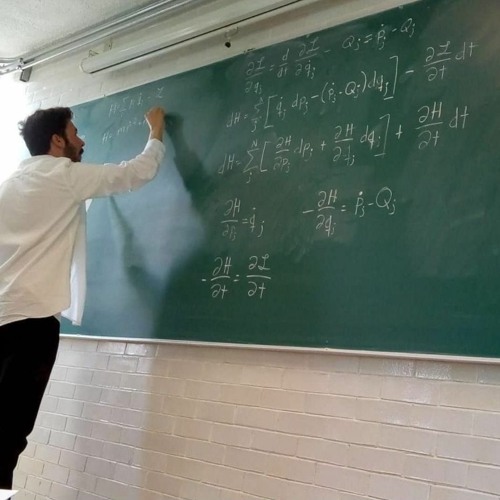 ∂ℒ/∂qⱼ = d/dt ∂ℒ/∂q̇ⱼ - Qⱼ = ṗⱼ - Qⱼ
dH = Σⱼ [q̇ⱼ dpⱼ - (ṗⱼ - Qⱼ) dqⱼ] - ∂ℒ/∂t dt
dH = Σⱼᴺ [∂H/∂pⱼ dpⱼ + ∂H/∂qⱼ dqⱼ] + ∂H/∂t dt
∂H/∂pⱼ = q̇ⱼ -∂H/∂qⱼ = ṗⱼ - Qⱼ
-∂H/∂t = ∂ℒ/∂t